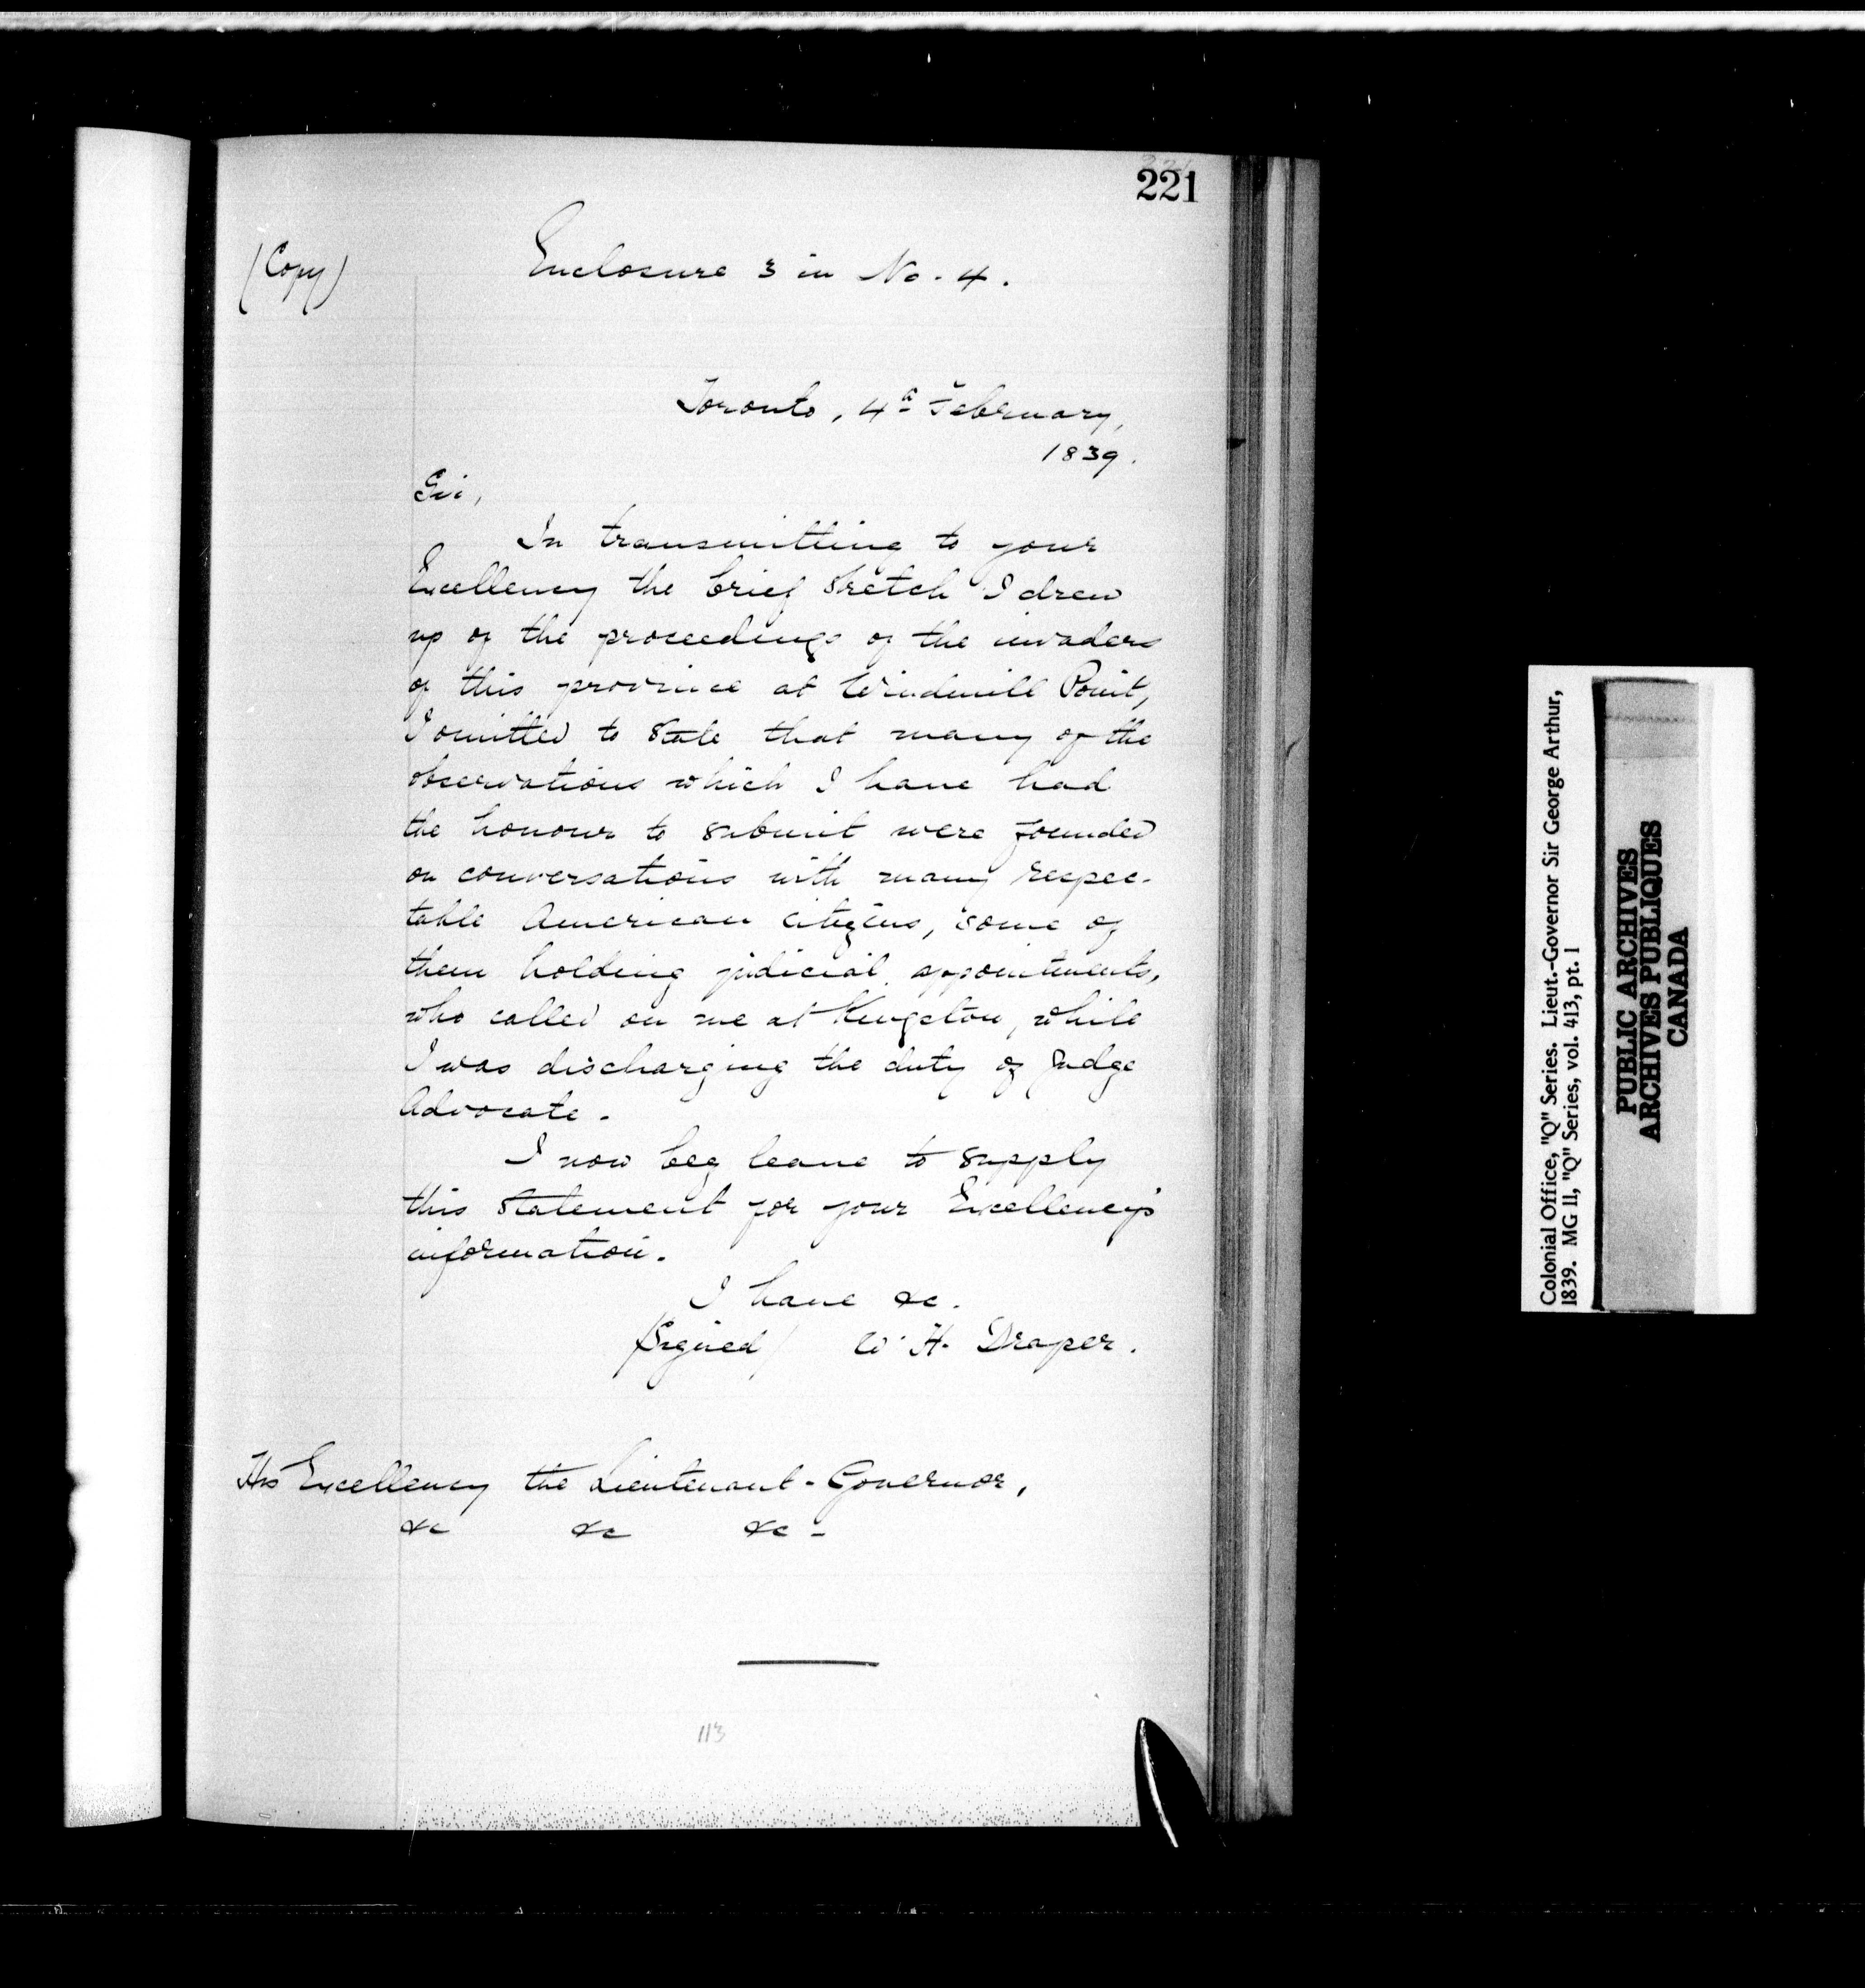 221
(Copy)
Enclosure 3 in No. 4.
Toronto, 4th February,
1839.
Sir,
In transmitting to your
Excellency the brief sketch I drew
up of the proceedings of the invaders
of this province at Windmill Point,
I omitted to state that many of the
observations which I have had
the honour to submit were founded
on conversations with many respec-
table American citizens, some of
them holding judicial appointments,
who called on me at Kingston, while
I was discharging the duty of Judge
Advocate.
I now beg leave to supply
this statement for your Excellency's
information.
I have &c.
(Signed) W. H. Draper.
His Excellency the Lieutenant-Governor,
&c &c &c -
113
Colonial Office, "Q" Series. Lieut.-Governor Sir George Arthur,
1839. MG 11, "Q" Series, vol. 413, pt. 1
PUBLIC ARCHIVES
ARCHIVES PUBLIQUES
CANADA